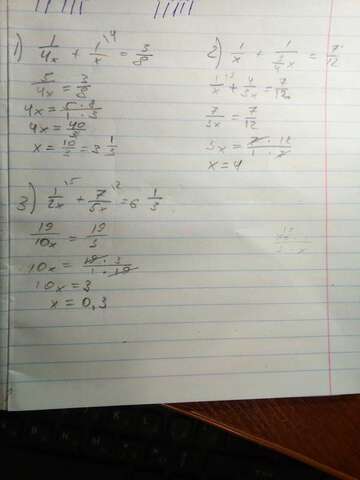 1) 1/4x + 1/x \4 = 3/8
5/4x = 3/8
4x = 5·8/1·3
4x = 40/3
x = 10/3 = 3 1/3
2) 1/x + 1/(3/4 x) = 7/12
1/x \3 + 4/3x = 7/12
7/3x = 7/12
3x = 7·12/1·7
x = 4
3) 1/2x \5 + 7/5x \2 = 6 1/3
19/10x = 19/3
10x = 19·3/1·19
10x = 3
x = 0,3